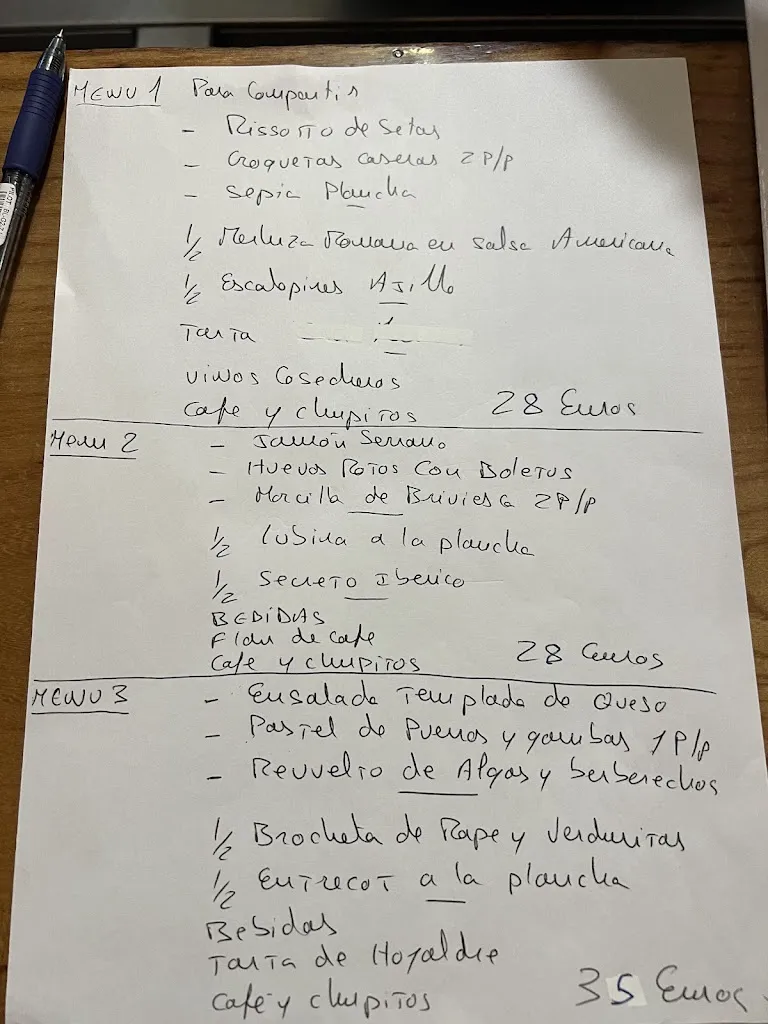 MENU 1 Para Compartir
- Rissotto de Setas
- Croquetas caseras 2 P/p
- Sepia Plancha
1/2 Merluza Romana en salsa Americana
1/2 Escalopines Ajillo
Tarta
vinos Cosecheros
Cafe y chupitos 28 Euros
Menu 2 - Jamón Serrano
- Huevos Rotos Con Boletus
- Morcilla de Briviesca 2 P/p
1/2 Lubina a la plancha
1/2 Secreto Iberico
BEBIDAS
Flan de cafe
Cafe y chupitos 28 Euros
MENU 3 - Ensalada Templada de Queso
- Pastel de Puerros y gambas 1 P/p
- Revuelto de Algas y berberechos
1/2 Brocheta de Rape y Verduritas
1/2 Entrecot a la plancha
Bebidas
Tarta de Hojaldre
Café y chupitos 35 Euros